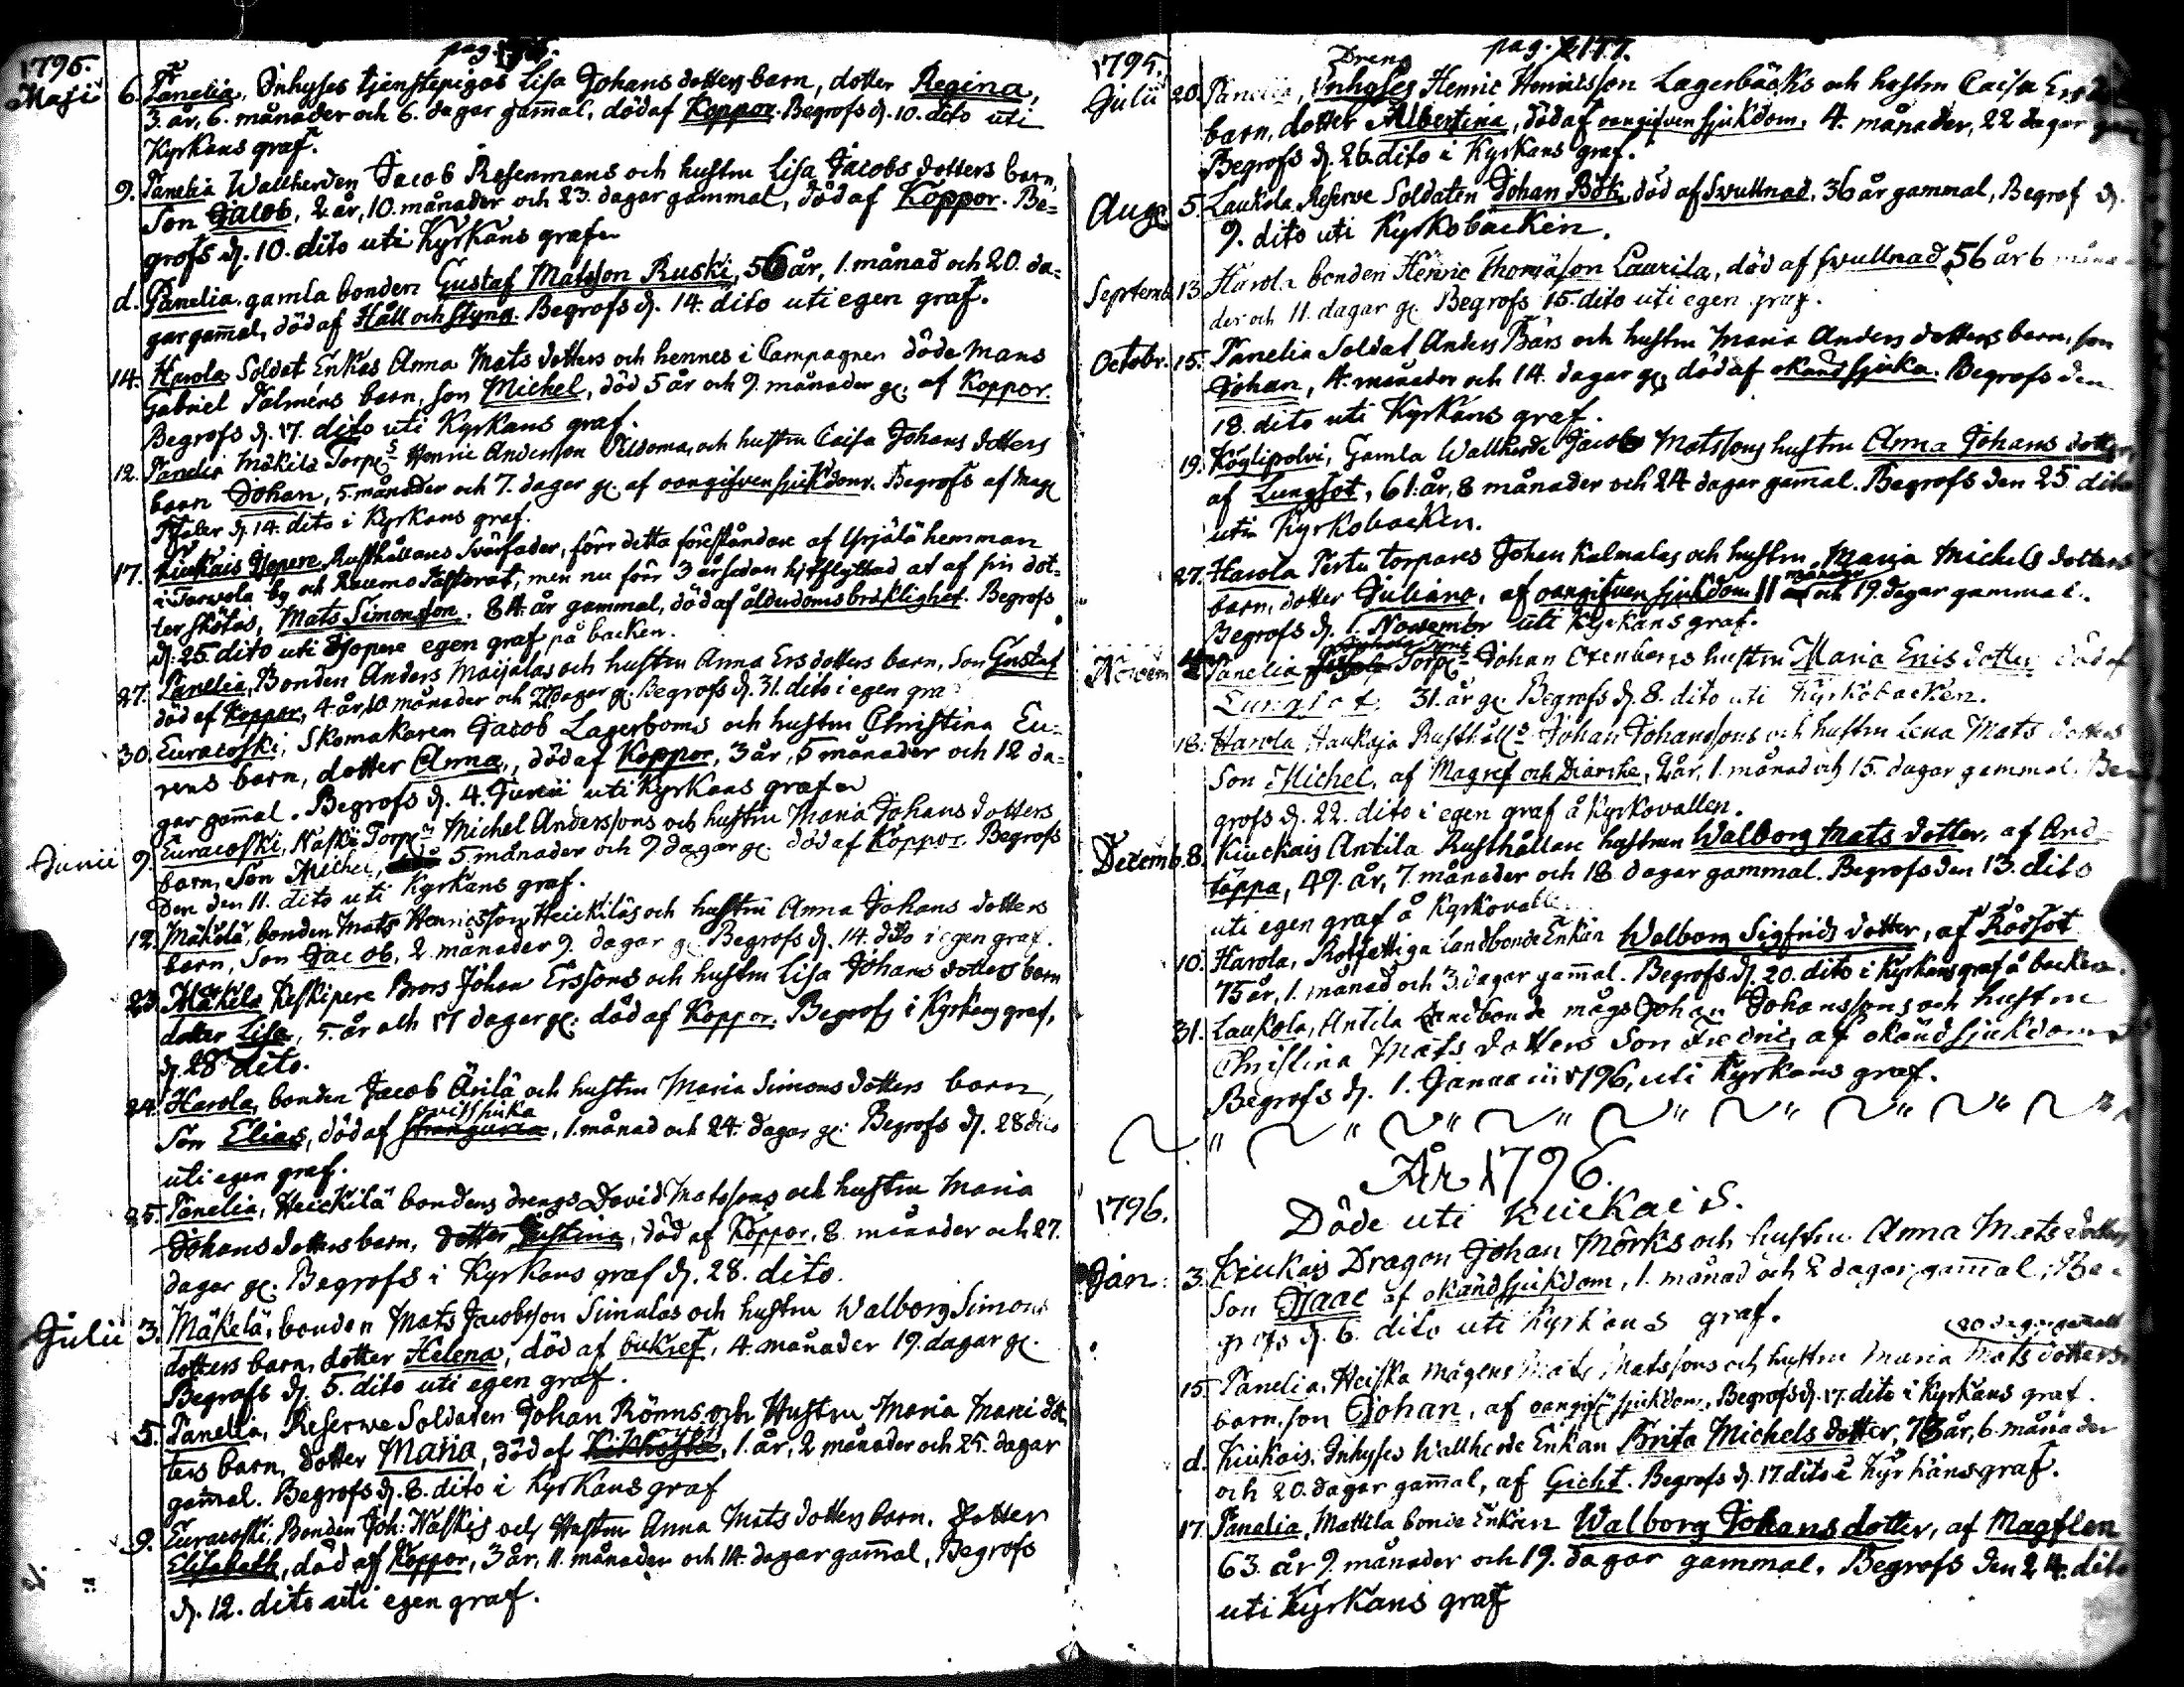 1795.
Maji 6. Panelia, Inhyses tjenstepigas Lisa Johans dotters barn, dotter Regina,
3. år, 6. månader och 6. dagar gam̄al, död af Koppor. Begrofs d. 10. dito uti
Kyrkans graf.
9. Panelia Wallherden Jacob Rosenmans och hustru Lisa Jacobs dotters barn,
Son Jacob, 2 år, 10. månader och 23. dagar gammal, död af Koppor. Be=
grofs d. 10. dito uti Kyrkans grafen
d. Panelia, gamla bonden Gustaf Matsson Ruski, 56 år, 1. månad och 20. da=
gar gam̄al, död af Håll och Styng. Begrofs d. 14. dito uti egen graf.
14. Harola Soldat Enkas Anna Mats dotters och hennes i Campagnen döde Mans
Gabriel Palmens barn, son Michel, död 5 år och 9. månader g: af Koppor.
Begrofs d. 17. dito uti Kyrkans graf.
12. Panelia Mäkilä Torp: Henric Andersson Veldoma, och hustru Caisa Johans dotters
barn Johan, 5. månader och 7. dagar g: af oangifven sjukdom. Begrofs af Mag:
d. 14. dito i Kyrkans graf.
17. Kiukais Rusthållares Svärfader, förr detta föreståndare af Yrjälä hemman
i Tarvola by och Raumo Pastorat, men nu förr 3 år sedan hitflyttad at af sin dot=
ter skötas, Mats Simonsson. 84. år gammal, död af ålderdoms bräklighet. Begrofs
d. 25. dito uti egen graf på backen.
27. Panelia, Bonden Anders Maijalas och hustru Anna Ers dotters barn, Son Gustaf
död af Koppor, 4 år, 10 månader och dagar g: Begrofs d. 31. dito i egen gra
30. Euracoski, Skomakaren Jacob Lagerboms och hustru Christina Eu=
rens barn, dotter Anna, död af Koppor, 3 år, 5 månader och 12 da=
gar gam̄al. Begrofs d. 4. Junii uti Kyrkans grafen
Junii 9. Euracoski, Naski Torp: Michel Anderssons och hustru Maria Johans dotters
barn, Son Michel, 5. månader och 9. dagar g: död af Koppor. Begrofs
Den den 11. dito uti Kyrkans graf.
12. Mäkelä, bonden Mats Henricsson Heickiläs och hustru Anna Johans dotters
barn, Son Jacob, 2. månader 9. dagar g: Begrofs d. 14. dito i egen graf.
23. Mäkelä Keskipere Brors Johan Erssons och hustru Lisa Johans dotters barn
dotter Lisa, 5. år och 17 dagar g: död af Koppor. Begrofs i Kyrkans graf,
d. 28 dito.
24. Harola, bonden Jacob Ärilä och hustru Maria Simons dotters barn,
Son Elias, död af stranguria, 1. månad och 24. dagar g: Begrofs d. 28 dito
uti egen graf.
25. Panelia, Heickilä bondens drengs David Matssons och hustru Maria
Johans dotters barn, dotter Justina, död af Koppor, 8. månader och 27.
dagar g: Begrofs i Kyrkans graf d. 28. dito.
Julii 3. Mäkelä, bonden Mats Jacobsson Simulas och hustru Walborg Simons
dotters barn, dotter Helena, död af bukref, 4. månader 19. dagar g:
Begrofs d. 5. dito uti egen graf.
5. Panelia, Reserve Soldaten Johan Rönns och Hustru Maria dot
ters barn, dotter Maria, död af Kikhosta, 1. år, 2 månader och 25. dagar
gam̄al. Begrofs d. 8. dito i Kyrkans graf
9. Euracoski, Bonden Joh: Naskis och Hustru Anna Mats dotters barn, Dotter
Elisabeth, död af Koppor, 3 år, 11. månader och 14. dagar gam̄al, Begrofs
d. 12. dito uti egen graf.
pag. 177.
1795.
Dreng
Julii 20. Panelia, Inhyses Henric Henricsson Lagerbäcks och hustru Caisa Ers
barn, dotter Albertina, död af oangifven sjukdom, 4. månader, 22 dagar
Begrofs d. 26. dito i Kyrkans graf.
Aug: 5. Laukola, Reserve Soldaten Johan Bök, död af Svullnad, 36 år gammal, Begrof d.
9. dito uti Kyrkobacken.
Septemb. 13. Harola bonden Henric Thomasson Laurila, död af svullnad, 56 år 6 måna
der och 11. dagar g: Begrofs 15. dito uti egen graf.
Octobr. 15. Panelia Soldat Anders Bärs och hustru Maria Anders dotters barn, son
Johan, 4. månader och 14. dagar g: död af okänd sjuka. Begrofs den
18. dito uti Kyrkans graf.
19. Köylipolvi, Gamla Wallherde Jacob Matssons hustru Anna Johans dotter,
af Lungsot, 61. år, 8 månader och 24 dagar gam̄al. Begrofs den 25 dito
uti Kyrkobacken.
27. Harola Pertu torpares Johan Kalmalas och hustru Maria Michels dotters
månader
barn, dotter Juliana, af oangifven sjukdom 11 och 19. dagar gammal.
Begrofs d. 1. Novembr uti Kyrkans graf.
Novem 4. Panelia Torp: Johan Oxenbergs hustru Maria Erics dotter död af
Lungsot 31. år g: Begrofs d. 8. dito uti Kyrkobacken.
18. Harola Haukoja Rusthåll: Johan Johanssons och hustru Lena Mats dotters
Son Michel, af Magref och Diarrhe, 2 år, 1. månad och 15. dagar gammal. Be=
grofs d. 22. dito i egen graf å Kyrkovallen.
Decemb. 8. Kiuckais Antila Rusthållare hustrun Walborg Mats dotter, af And=
täppa, 49. år, 7. månader och 18 dagar gammal. Begrofs den 13. dito
uti egen graf å Kyrkovalle
10. Harola, Rotfattiga landbonde Enkan Walborg Sigfrids dotter, af Rödsot
75 år, 1. månad och 3. dagar gam̄al. Begrofs d. 20. dito i Kyrkans graf å backen.
31. Laukola, Antila landbonde mågs Johan Johanssons och hustru
Christina Mats dotters Son Fredric, af okänd sjukdom
Begrofs d. 1. Januarii 1796, uti Kyrkans graf.
År 1796.
1796. Döde uti Kiukais.
Jan: 3. Kiukais Dragon Johan Mörks och hustru Anna Mats dotters
Son Isaac af okänd sjukdom, 1. månad och 2 dagar gam̄al; Be=
grofs d. 6. dito uti Kyrkans graf.
20 dagar gammalt
15. Panelia, Heiska mågens Mats Matssons och hustru Maria Mats dotters
barn, son Johan, af oangif: sjukdom, Begrofs d. 17. dito i Kyrkans graf.
d. Kiukais, Inhyses Wallherde Enkan Brita Michels dotter, 73 år, 6. månader
och 20. dagar gam̄al, af Gicht. Begrofs d. 17. dito i Kyrkans graf.
17. Panelia, Mattila bonde Enkan Walborg Johans dotter, af Magflen
63. år 9. månader och 19. dagar gammal. Begrofs den 24. dito
uti Kyrkans graf